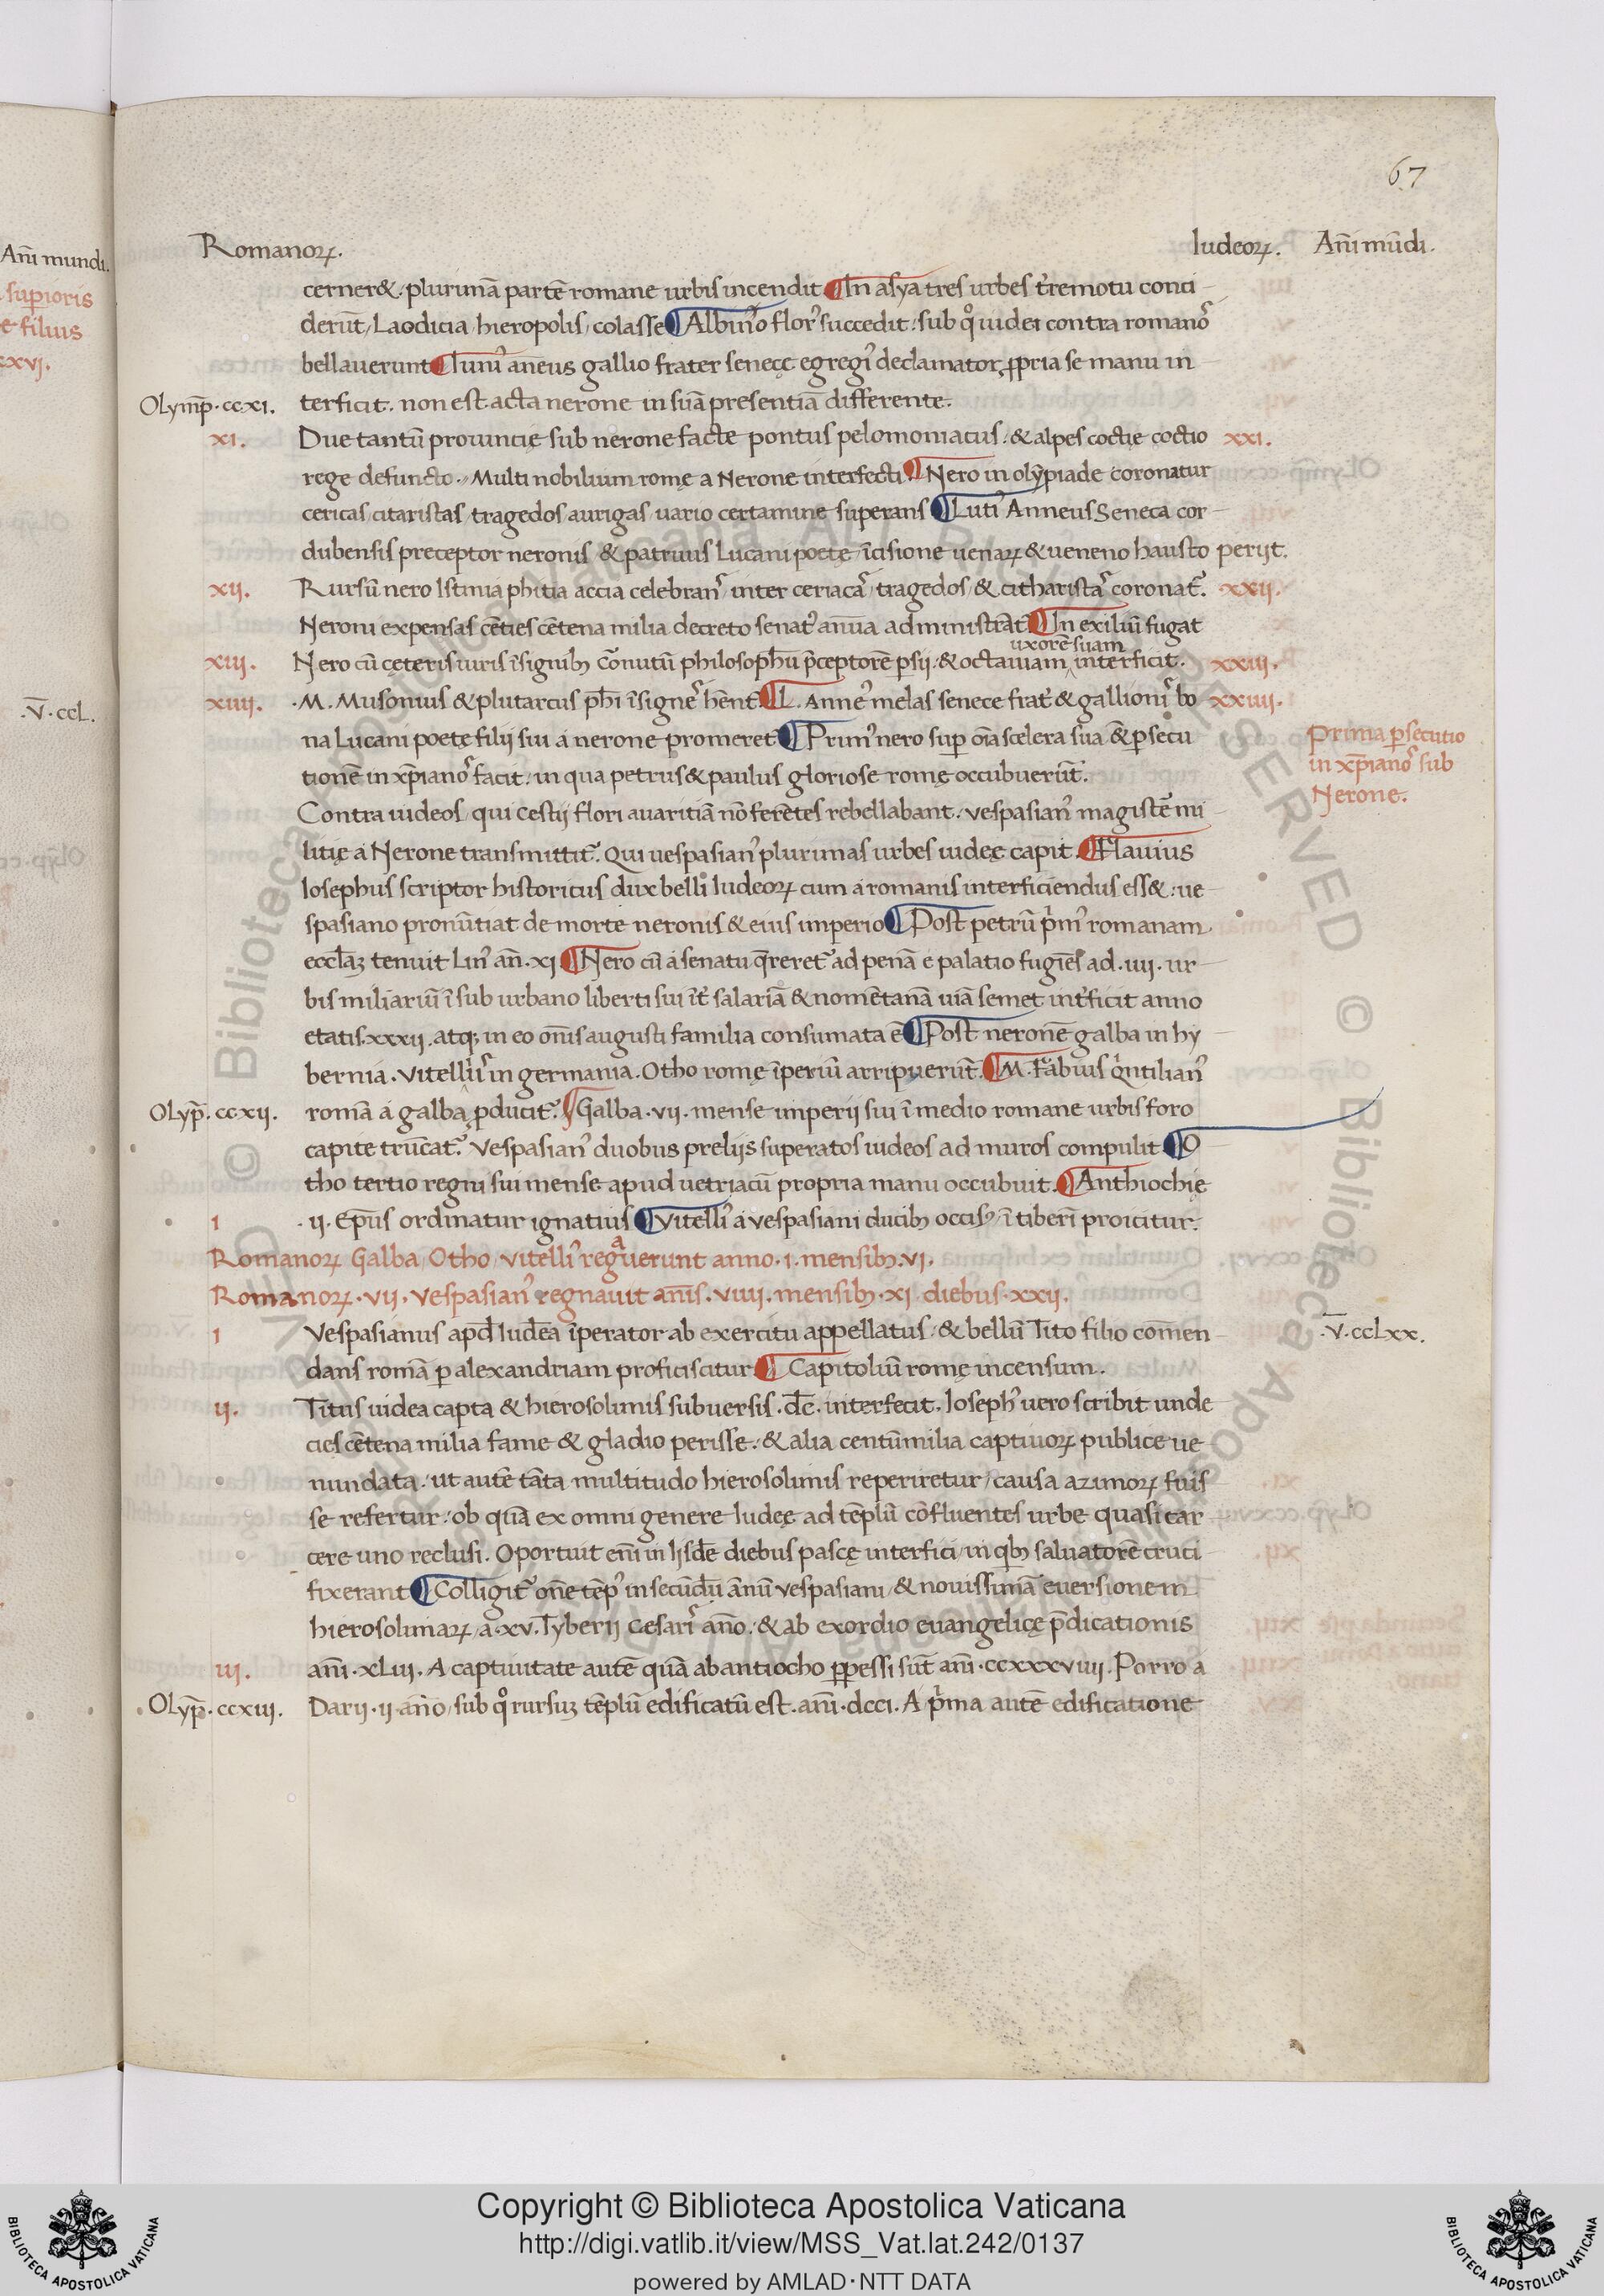 67
Añi mundi.
supioris
e filius
xxvj.
.V̄.ccL.
Romanoꝝ.
Iudeoꝝ. Añi mūdi.
cerner&. plurimā partē romane urbis incendit ¶In asya tres urbes t̄remotu conci
derūt, Laodicia, hieropolis, colasse ¶Albinꝰo florꝰ succedit: sub qͦ iudei contra romanoꝰ
bellauerunt ¶Iuniꝰ aneus gallio frater senecę egregiꝰ declamator, ꝓpria se manu in
Olymp̄.ccxi. terficit. non est acta nerone in suā presentiā differente.
xi. Due tantū prouincię sub nerone facte pontus pelomoniacus: & alpes coctię coctio xxi.
rege defuncto. Multi nobilium romę a Nerone interfecti ¶Nero in olȳpiade coronatur
cericas, citaristas, tragedos aurigas, uario certamine superans ¶Lutiꝰ Anneus Seneca cor
dubensis preceptor neronis & patruus Lucani poetę, īcisione uenaꝝ & ueneno hausto perijt.
xij. Rursū nero Istinia phitia accia celebranꝰ, inter ceriacaꝰ, tragedos, & citharistaꝰ coronatꝰ. xxij.
Neroni expensas cēties cētena milia decreto senatꝰ annua administrāt ¶In exiliū fugat
uxorē suam
xiij. Nero cū ceteris uiris īsignib; cōnutū philosophū p̄ceptorē p̱sii: & octauiam, interficit. xxiij.
xiiij. .M. Musonius & plutarcus phī īsigneꝰ hēnt ¶L. Anneꝰ melas senece frat̄ & gallioniꝰ bo xxiiij.
na Lucani poetę filij sui a nerone promeret̄ ¶Primꝰ nero suꝑ oīa scelera sua & ꝑsecu
tionē in xp̄ianoꝰ facit: in qua petrus & paulus gloriose romę occubuerūt.
Prima ꝑsecutio
in xp̄ianoꝰ sub
Nerone.
Contra iudeos, qui cestij flori auaritiā nō ferētes rebellabant. vespasianꝰ magistē mi
litię a Nerone transmittitꝰ. Qui uespasianꝰ plurimas urbes iudeę capit. ¶Flauius
Iosephus scriptor historicus dux belli Iudeoꝝ cum a romanis interficiendus ess&: ue
spasiano pronūtiat de morte neronis & eius imperio ¶Post petrū p̄mꝰ romanam
eccl̄aꝫ tenuit Linꝰ añ.xi ¶Nero cū a senatu q̄reretꝰ ad penā e palatio fugiēs ad.iiij.ur
bis miliariū ī sub urbano liberti sui īt̄ salariā & nomētanā uiā semet int̄ficit anno
etatis.xxxij.atq; in eo om̄is augusti familia consumata ē ¶Post neronē galba in hy
bernia. Vitelliꝰ in germania. Otho romę īperiū arripuerūt. ¶M. Fabius Q̄ntilianꝰ
Olyp̄.ccxij. romā a galba ꝑducitꝰ. ¶Galba.vij. mense imperij sui ī medio romane urbis foro
capite trūcatꝰ. Vespasianꝰ duobus prelijs superatos iudeos ad muros compulit ¶O
tho tertio regni sui mense apud uetriacū propria manu occubuit. ¶Anthiochię
1 .ij. Ep̄us ordinatur ignatius ¶Vitelliꝰ a vespasiani ducib; occisꝰ, ī tiberī proicitur.
Romanoꝝ Galba, Otho, vitelliꝰ regnauerunt anno.1.mensib;.vj.
Romanoꝝ.vij. Vespasianꝰ regnauit añis.viiij.mensib;.xi diebus.xxij.
1 Vespasianus apd̄ Iudeā īperator ab exercitu appellatus: & bellū Tito filio com̄en .V̄.ccLxx.
dans romā ꝑ alexandriam proficiscitur ¶Capitoliū romę incensum.
ij. Titus iudea capta & hierosolimis subuersis.dc̄.interfecit. Iosephꝰ uero scribit unde
cies cētena milia fame & gladio perisse: & alia centūmilia captiuoꝝ publice ue
nundata. ut autē tāta multitudo hierosolimis reperiretur, causa azimoꝝ fuis
se refertur: ob quā ex omni genere Iudeę ad tēplū cōfluentes urbe quasi car
cere uno reclusi. Oportuit enī in ijsdē diebus pascę interfici, in qb; saluatorē cruci
fixerant ¶Colligitꝰ om̄e tēpꝰ in secūdū ānū vespasiani, & nouissimā euersionem
hierosolimaꝝ, a.xv. Tyberij Cesariꝰ año.& ab exordio euangelicę p̄dicationis
iij. añi.xLij. A captiuitate autē quā ab antiocho ꝑpessi sūt añi.ccxxxviiij. Porro a
Olyp̄.ccxiij. Darii.ij.año, sub qͦ rursuꝫ tēplū edificatū est.añi.dcci. A p̄ma autē edificatione
Copyright © Biblioteca Apostolica Vaticana
http://digi.vatlib.it/view/MSS_Vat.lat.242/0137
powered by AMLAD·NTT DATA
BIBLIOTECA APOSTOLICA VATICANA
BIBLIOTECA APOSTOLICA VATICANA